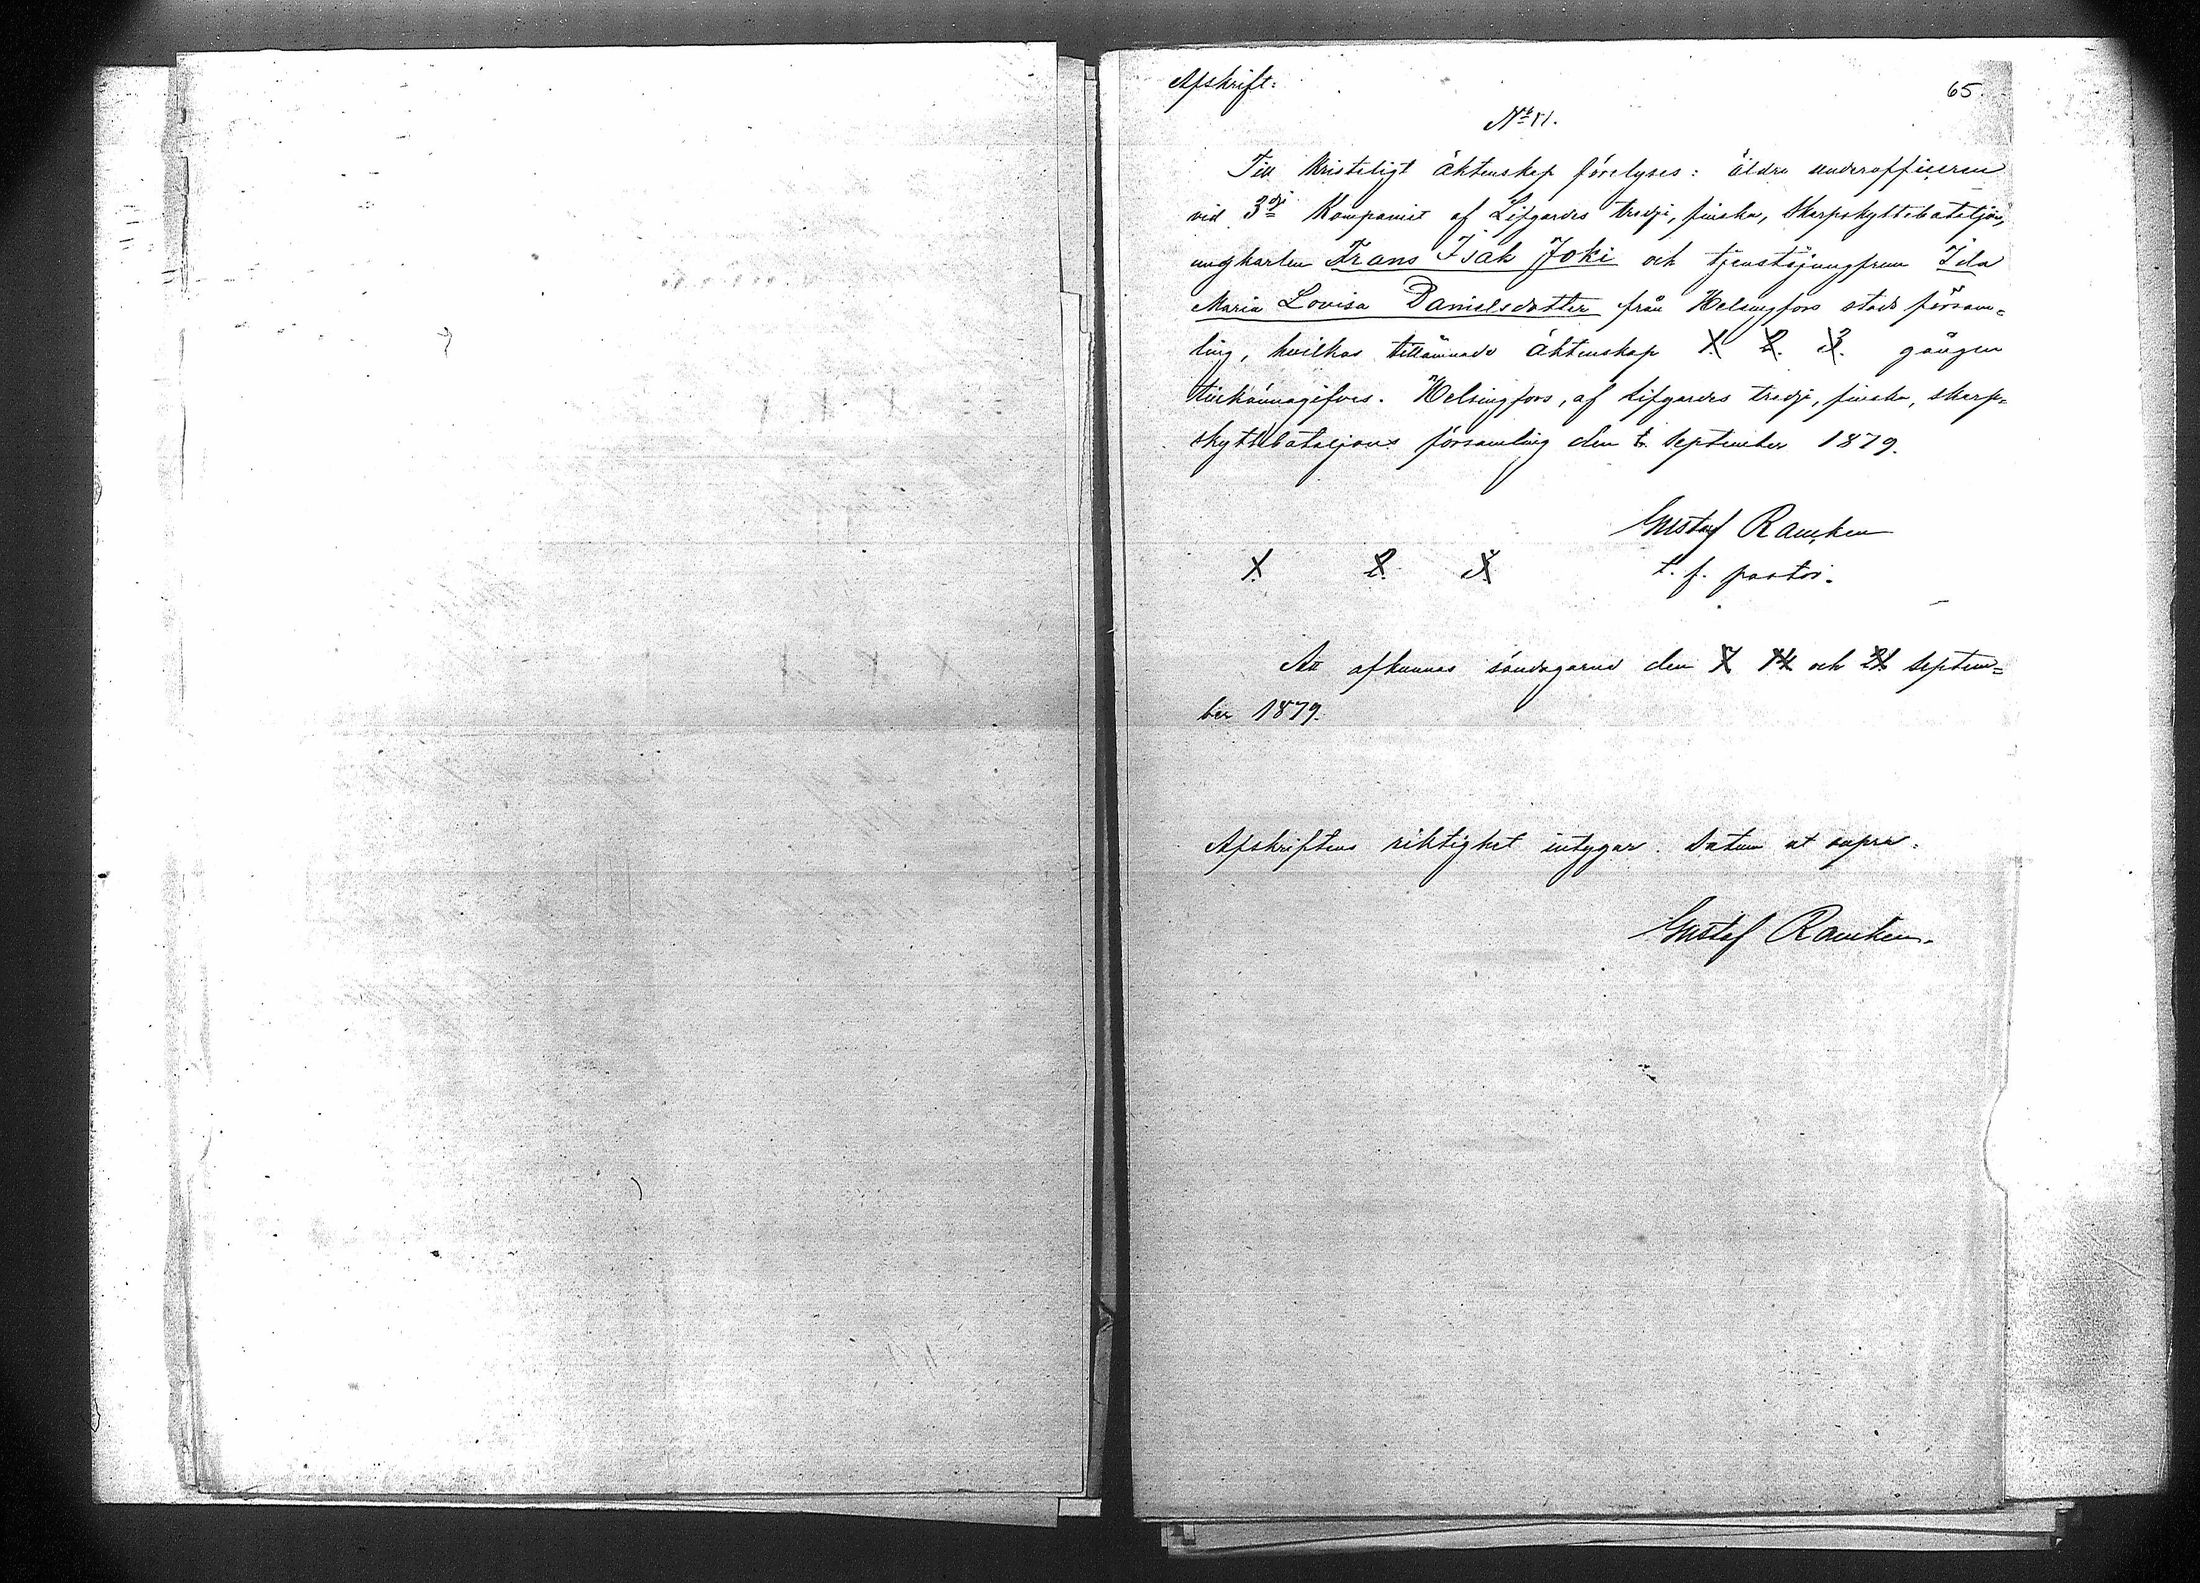 Afskrift:
65.
No 11.
Till kristeligt äktenskap förelyses: äldre underofficeren
vid 3dje Kompaniet af Lifgardes tredje, finska, Skarpskyttebataljon,
ungkarlen Frans Isak Joki och tjenstejungfrun Ida
Maria Lovisa Danielsdotter från Helsingfors stads försam=
ling, hvilkas tillämnade äktenskap 1. 2. 3. gången
tillkännagifves. Helsingfors, af Lifgardes tredje, finska, skarp=
skyttebataljons församling den 6 September 1879.
Gustaf Rancken
1. 2. 3. t. f. pastor.
Att afkunnas söndagarna den 7 14 och 21 septem=
ber 1879.
Afskriftens riktighet intygar. Datum ut supra.
Gustaf Rancken.